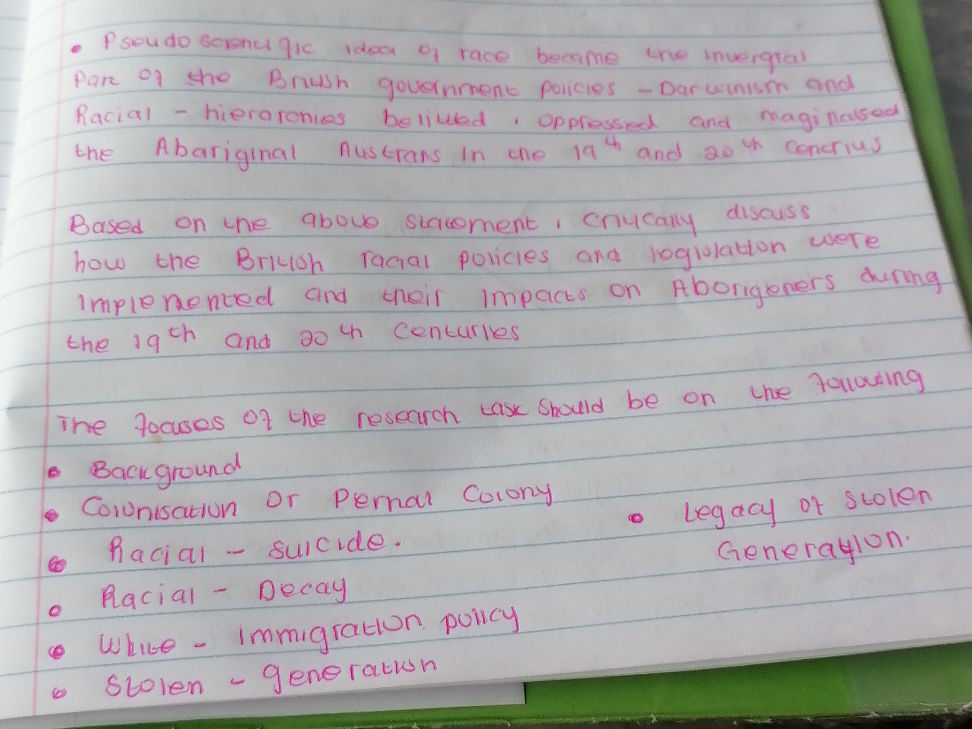 • Pseudo scientific idea of race became the invergral
Part of the British government policies - Darwinism and
Racial - hierarchies belittled, oppressed and maginalised
the Abariginal Austrans in the 19th and 20th centrius
Based on the above statement, critically discuss
how the British racial policies and legislation were
implemented and their impacts on Aborigeners during
the 19th and 20th centuries
The focuses of the research task should be on the following
• Background
• Colonisation or Pernal Colony
• Racial - suicide.
• Racial - Decay
• White - immigration policy
• Stolen - generation
• Legacy of Stolen
Generation.